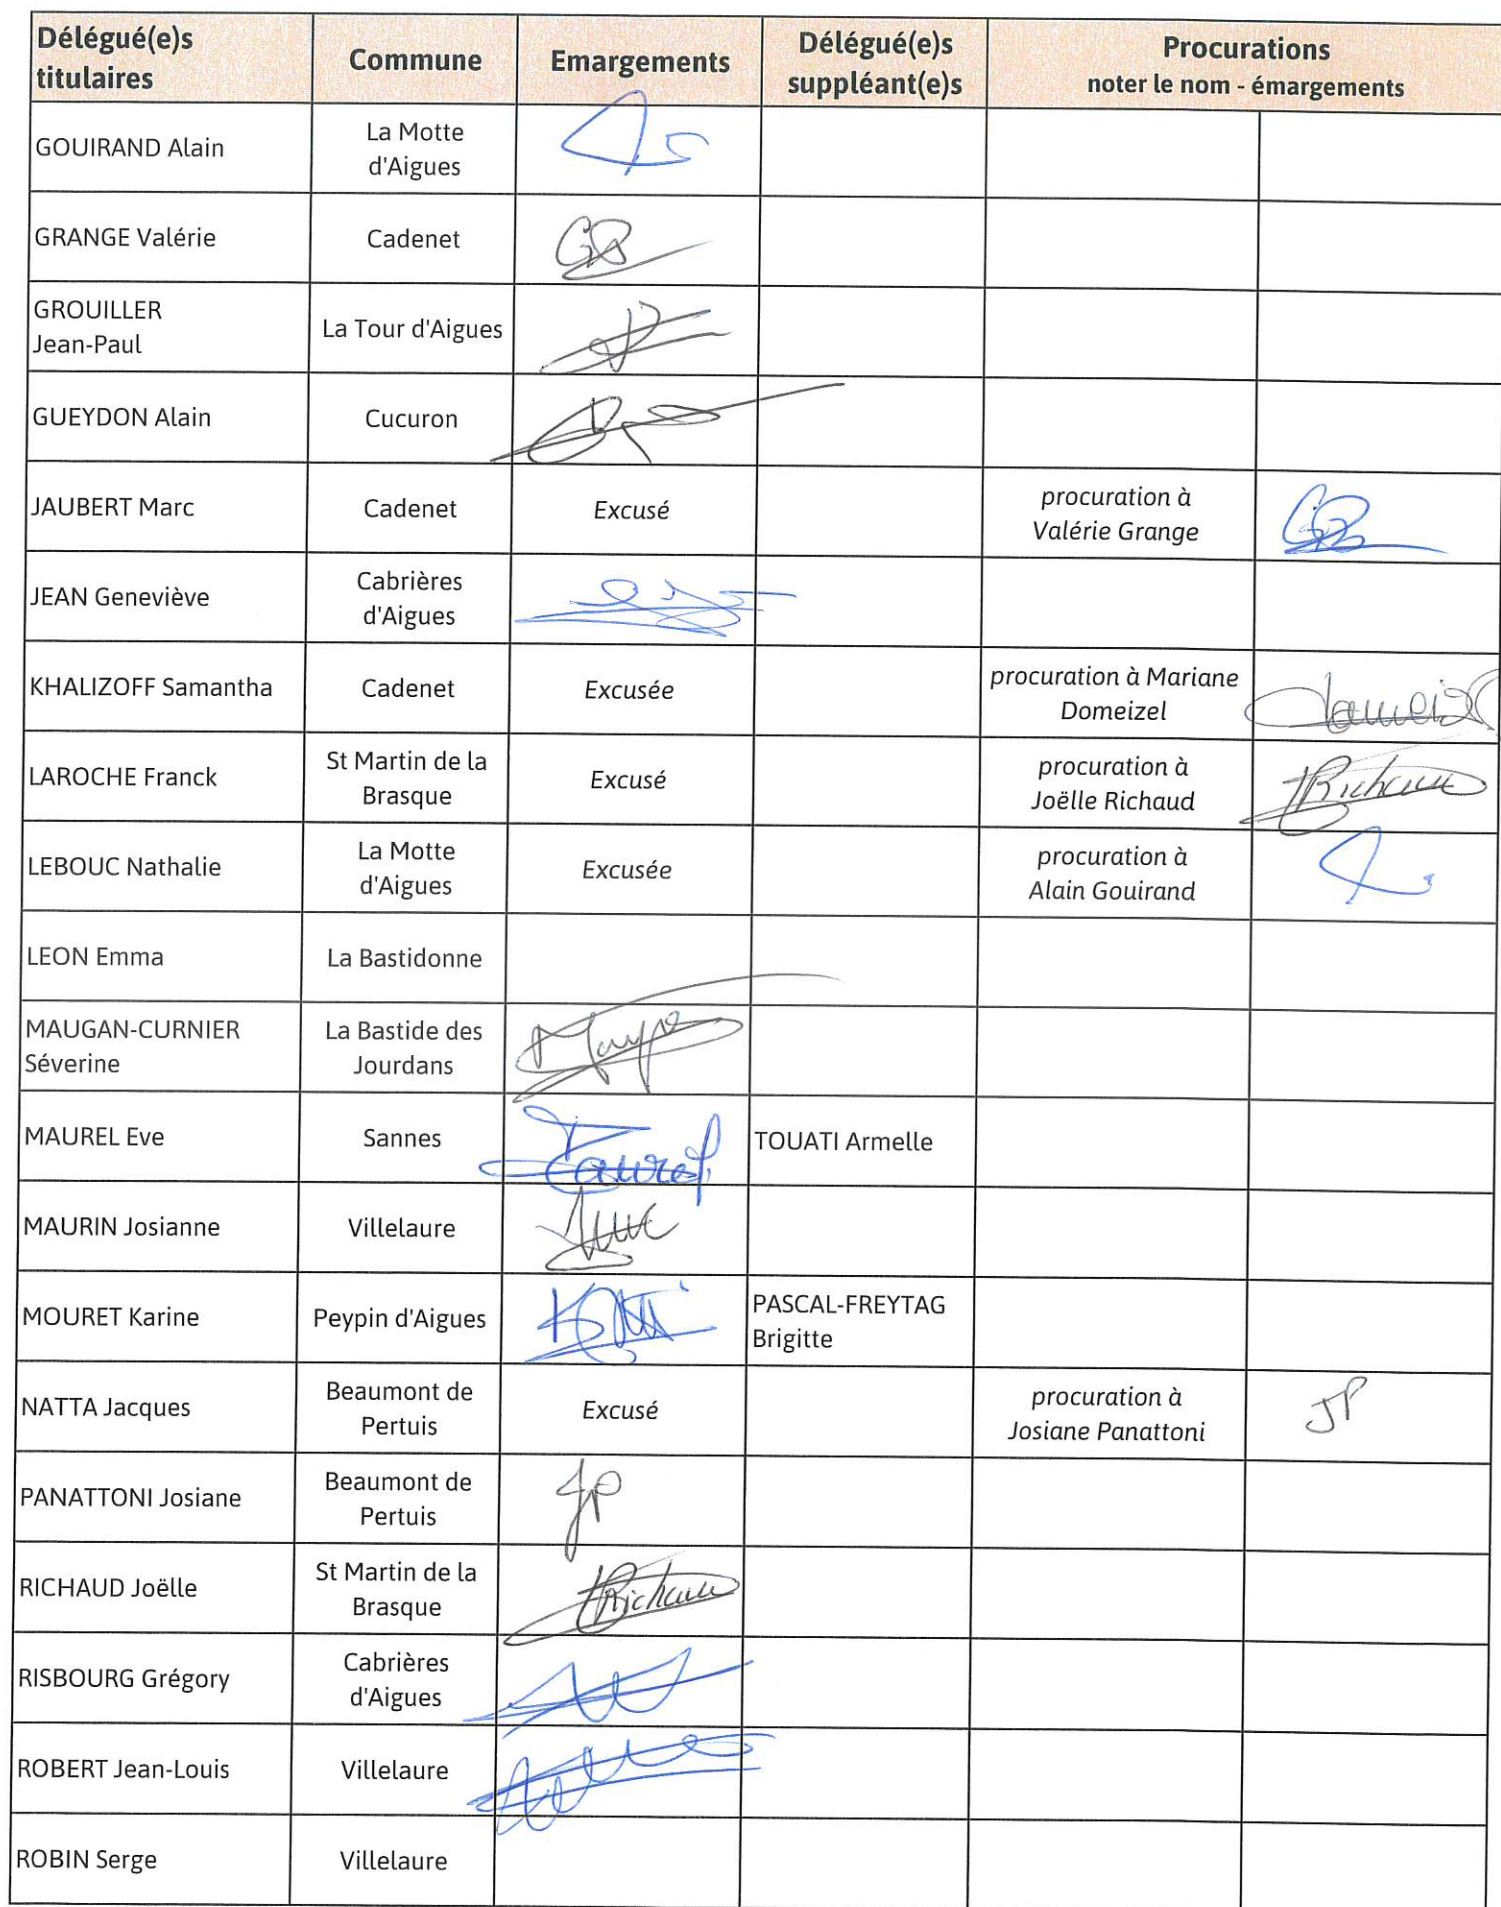 Délégué(e)s
titulaires
Commune
Emargements
Délégué(e)s
suppléant(e)s
Procurations
noter le nom - émargements
GOUIRAND Alain
La Motte
d'Aigues
GRANGE Valérie
Cadenet
GROUILLER
Jean-Paul
La Tour d'Aigues
GUEYDON Alain
Cucuron
JAUBERT Marc
Cadenet
Excusé
procuration à
Valérie Grange
JEAN Geneviève
Cabrières
d'Aigues
KHALIZOFF Samantha
Cadenet
Excusée
procuration à Mariane
Domeizel
LAROCHE Franck
St Martin de la
Brasque
Excusé
procuration à
Joëlle Richaud
Richaud
LEBOUC Nathalie
La Motte
d'Aigues
Excusée
procuration à
Alain Gouirand
LEON Emma
La Bastidonne
MAUGAN-CURNIER
Séverine
La Bastide des
Jourdans
MAUREL Eve
Sannes
TOUATI Armelle
MAURIN Josianne
Villelaure
MOURET Karine
Peypin d'Aigues
PASCAL-FREYTAG
Brigitte
NATTA Jacques
Beaumont de
Pertuis
Excusé
procuration à
Josiane Panattoni
JP
PANATTONI Josiane
Beaumont de
Pertuis
JP
RICHAUD Joëlle
St Martin de la
Brasque
Richaud
RISBOURG Grégory
Cabrières
d'Aigues
ROBERT Jean-Louis
Villelaure
ROBIN Serge
Villelaure